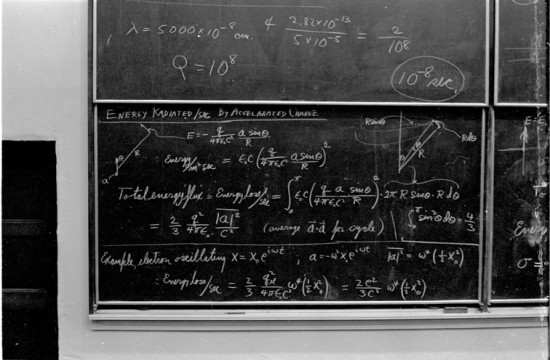 λ = 5000 × 10⁻⁸ cm. 4 2.82×10⁻¹³ / 5×10⁻⁵ = 2 / 10⁸
Q = 10⁸
10⁻⁸ sec.
ENERGY RADIATED/SEC BY ACCELERATED CHARGE
E = - q / 4πε₀c² a sinθ / R
Energy/m² sec = ε₀c (q / 4πε₀c² a sinθ / R)²
R sinθ
R dθ
R
θ
a
Total energy flux = Energy loss/sec = ∫₀^π ε₀c (q / 4πε₀c² a sinθ / R)² · 2π R sinθ · R dθ
= 2/3 q² / 4πε₀ |a|² / c³ (average a⃗·a⃗ for cycle) ∫₀^π sin³θ dθ = 4/3
Example, electron oscillating x = x₀e^iωt ; a = -ω²x₀e^iωt |a|² = ω⁴(½x₀²)
∴ Energy loss/sec = 2/3 q² / 4πε₀c³ ω⁴(½x₀²) = 2e² / 3c³ ω⁴(½x₀²)
E =
Energy
σ =